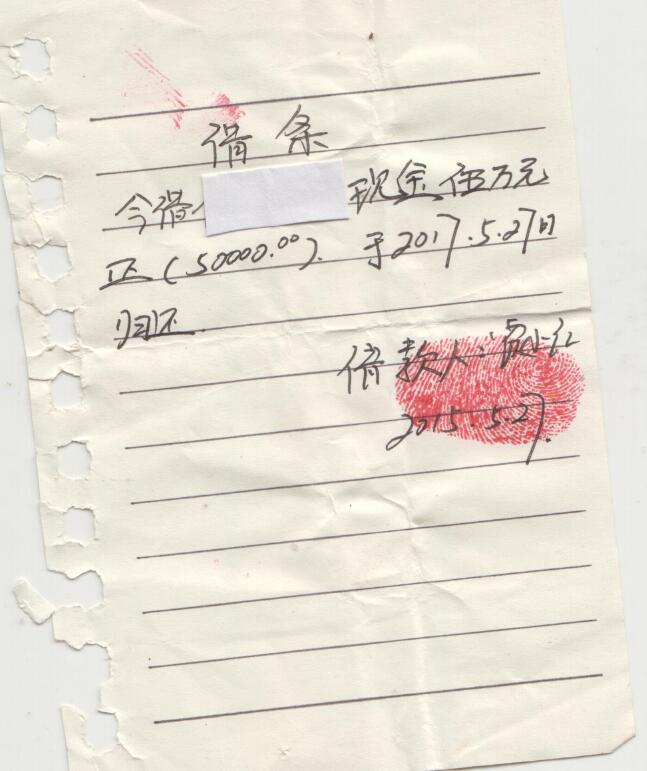 借条
今借 现金伍万元
正(50000.00). 于2017.5.27日
归还.
借款人:贾小红
2015.5.27.